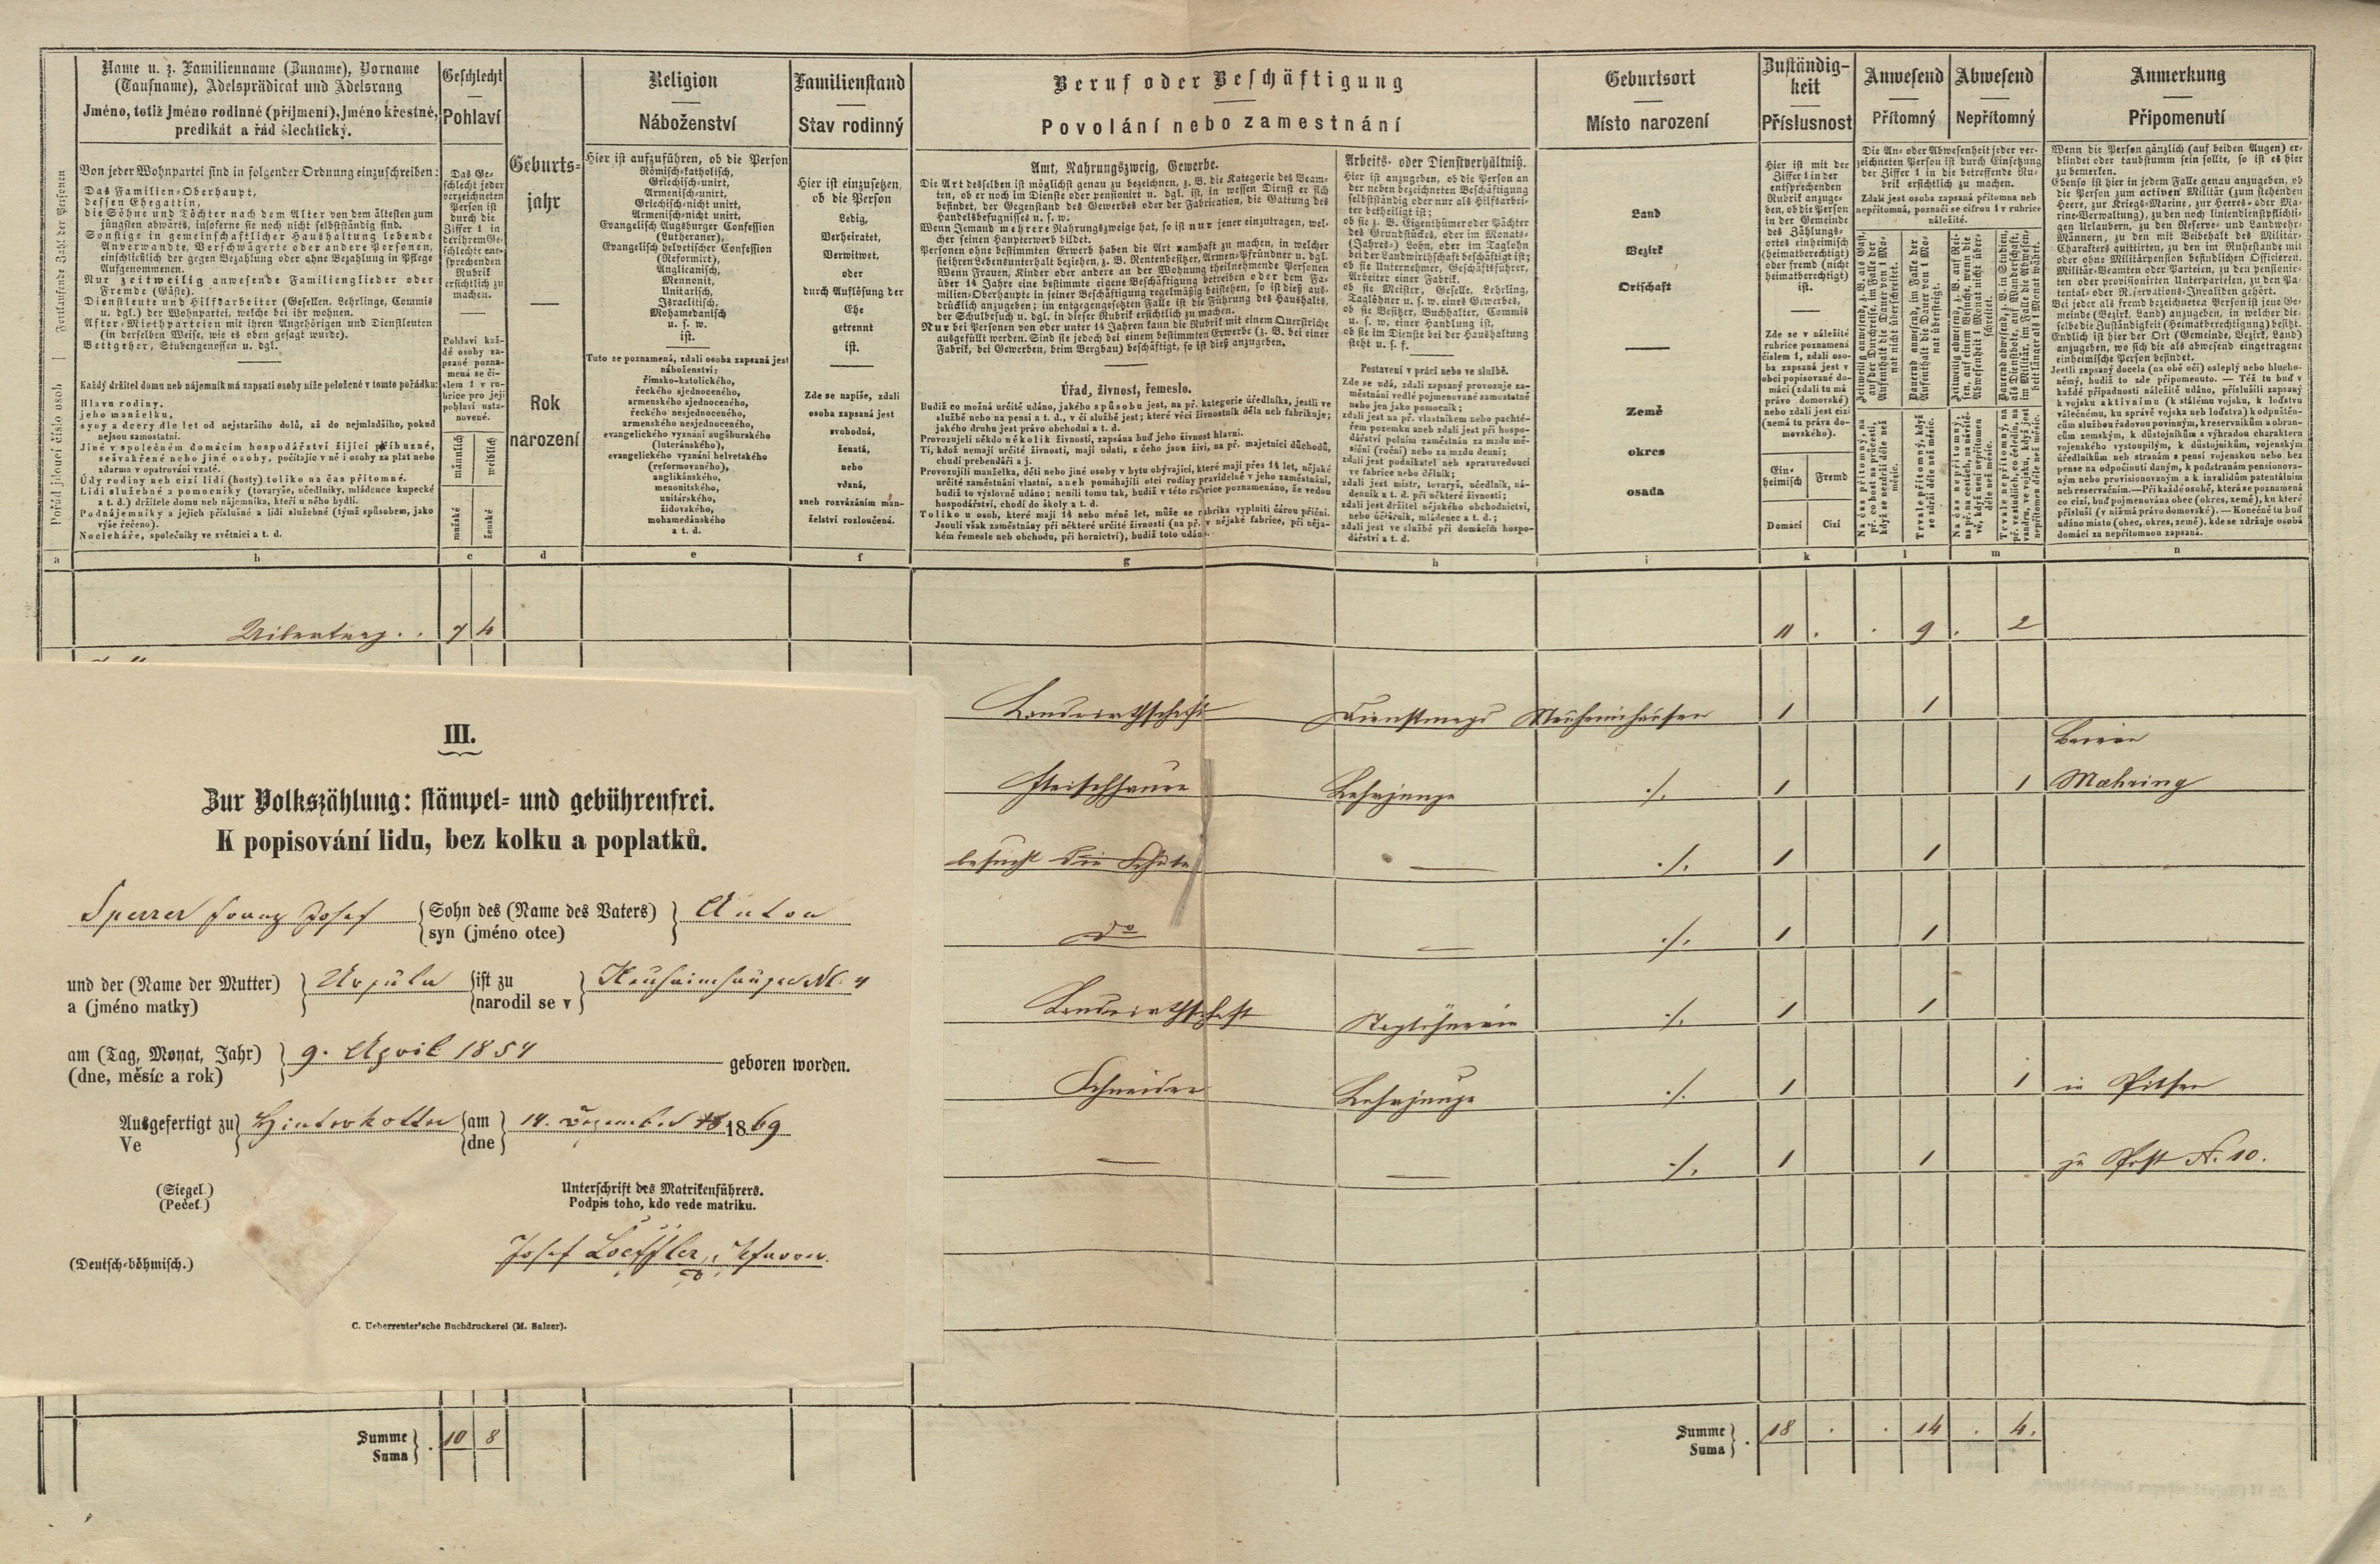 Name u. z. Familienname (Zuname), Vorname
(Taufname), Adelsprädicat und Adelsrang
Jméno, totiž jméno rodinné (příjmení), jméno křestné,
predikát a řád šlechtický.
Von jeder Wohnpartei sind in folgender Ordnung einzuschreiben:
Das Familien-Oberhaupt,
dessen Ehegattin,
die Söhne und Töchter nach dem Alter von dem ältesten zum
jüngsten abwärts, insoferne sie noch nicht selbstständig sind.
Sonstige in gemeinschaftlicher Haushaltung lebende
Anverwandte, Verschwägerte oder andere Personen,
einschließlich der gegen Bezahlung oder ohne Bezahlung in Pflege
Aufgenommenen.
Nur zeitweilig anwesende Familienglieder oder
Fremde (Gäste).
Dienstleute und Hilfsarbeiter (Gesellen, Lehrlinge, Commis
u. dgl.) der Wohnpartei, welche bei ihr wohnen.
After-Miethparteien mit ihren Angehörigen und Dienstleuten
(in derselben Weise, wie es oben gesagt wurde).
Bettgeher, Stubengenossen u. dgl.
Každý držitel domu neb nájemník má zapsati osoby níže položené v tomto pořádku:
Hlavu rodiny,
jeho manželku,
syny a dcery dle let od nejstaršího dolů, až do nejmladšího, pokud
nejsou samostatní.
Jiné v společném domácím hospodářství žijící příbuzné,
sešvakřené nebo jiné osoby, počítajíc v ně i osoby za plat nebo
zdarma v opatrování vzaté.
Údy rodiny neb cizí lidi (hosty) toliko na čas přítomné.
Lidi služebné a pomocníky (tovaryše, učedlníky, mládence kupecké
a t. d.) držitele domu neb nájemníka, kteří u něho bydlí.
Podnájemníky a jejich příslušné a lidi služebné (týmž spůsobem, jako
výše řečeno).
Nocleháře, společníky ve světnici a t. d.
Fortlaufende Zahl der Personen
Pořád jdoucí číslo osob
Geschlecht
Pohlaví
Das Ge-
schlecht jeder
verzeichneten
Person ist
durch die
Ziffer 1 in
der ihrem Ge-
schlechte ent-
sprechenden
Rubrik
ersichtlich zu
machen.
Pohlaví kaž-
dé osoby za-
psané pozna-
mená se čí-
slem 1 v ru-
brice pro její
pohlaví usta-
novené.
männlich
weiblich
mužské
ženské
Geburts-
jahr
Rok
narození
Religion
Náboženství
Hier ist aufzuführen, ob die Person
Römisch-katholisch,
Griechisch-unirt,
Armenisch-unirt,
Griechisch-nicht unirt,
Armenisch-nicht unirt,
Evangelisch Augsburger Confession
(Lutheraner),
Evangelisch helvetischer Confession
(Reformirt),
Anglicanisch,
Mennonit,
Unitarisch,
Israelitisch,
Mohamedanisch
u. s. w.
ist.
Tuto se poznamená, zdali osoba zapsaná jest
náboženství:
římsko-katolického,
řeckého sjednoceného,
armenského sjednoceného,
řeckého nesjednoceného,
armenského nesjednoceného,
evangelického vyznání augšburského
(luteránského),
evangelického vyznání helvetského
(reformovaného),
anglikánského,
menonitského,
unitárského,
židovského,
mohamedánského
a t. d.
Familienstand
Stav rodinný
Hier ist einzusetzen,
ob die Person
Ledig,
Verheiratet,
Verwitwet,
oder
durch Auflösung der
Ehe
getrennt
ist.
Zde se napíše, zdali
osoba zapsaná jest
svobodná,
ženatá,
nebo
vdaná,
aneb rozvázáním man-
želství rozloučená.
Beruf oder Beschäftigung
Povolání nebo zamestnání
Amt, Nahrungszweig, Gewerbe.
Die Art desselben ist möglichst genau zu bezeichnen, z. B. die Kategorie des Beam-
ten, ob er noch im Dienste oder pensionirt u. dgl. ist, in wessen Dienst er sich
befindet, der Gegenstand des Gewerbes oder der Fabrication, die Gattung des
Handelsbefugnisses u. s. w.
Wenn Jemand mehrere Nahrungszweige hat, so ist nur jener einzutragen, wel-
cher seinen Haupterwerb bildet.
Personen ohne bestimmten Erwerb haben die Art namhaft zu machen, in welcher
sie ihren Lebensunterhalt beziehen, z. B. Rentenbesitzer, Armen-Pfründner u. dgl.
Wenn Frauen, Kinder oder andere an der Wohnung theilnehmende Personen
über 14 Jahre eine bestimmte eigene Beschäftigung betreiben oder dem Fa-
milien-Oberhaupte in seiner Beschäftigung regelmäßig beistehen, so ist dieß aus-
drücklich anzugeben; im entgegengesetzten Falle ist die Führung des Haushalts,
der Schulbesuch u. dgl. in dieser Rubrik ersichtlich zu machen.
Nur bei Personen von oder unter 14 Jahren kann die Rubrik mit einem Querstriche
ausgefüllt werden. Sind sie jedoch bei einem bestimmten Erwerbe (z. B. bei einer
Fabrik, bei Gewerben, beim Bergbau) beschäftigt, so ist dieß anzugeben.
Úřad, živnost, řemeslo.
Budiž co možná určitě udáno, jakého spůsobu jest, na př. kategorie úředlníka, jestli ve
službě nebo na pensi a t. d., v čí službě jest; které věci živnostník dělá neb fabrikuje;
jakého druhu jest právo obchodní a t. d.
Provozujeli někdo několik živností, zapsána buď jeho živnost hlavní.
Ti, kdož nemají určité živnosti, mají udati, z čeho jsou živi, na př. majetníci důchodů,
chudí prebendáři a j.
Provozujíli manželka, děti nebo jiné osoby v bytu obývající, které mají přes 14 let, nějaké
určité zaměstnání vlastní, aneb pomáhajíli otci rodiny pravidelně v jeho zaměstnání,
budiž to výslovně udáno; neníli tomu tak, budiž v této rubrice poznamenáno, že vedou
hospodářství, chodí do školy a t. d.
Toliko u osob, které mají 14 nebo méně let, může se rubrika vyplniti čárou příční.
Jsouli však zaměstnány při některé určité živnosti (na př. v nějaké fabrice, při něja-
kém řemesle neb obchodu, při hornictví), budiž toto udáno.
Arbeits- oder Dienstverhältniß.
Hier ist anzugeben, ob die Person an
der neben bezeichneten Beschäftigung
selbstständig oder nur als Hilfsarbei-
ter betheiligt ist;
ob sie z. B. Eigenthümer oder Pächter
des Grundstückes, oder im Monats-
(Jahres-) Lohn, oder im Taglohn
bei der Landwirthschaft beschäftigt ist;
ob sie Unternehmer, Geschäftsführer,
Arbeiter einer Fabrik,
ob sie Meister, Geselle, Lehrling,
Taglöhner u. s. w. eines Gewerbes,
ob sie Besitzer, Buchhalter, Commis
u. s. w. einer Handlung ist,
ob sie im Dienste bei der Haushaltung
steht u. s. f.
Postavení v práci nebo ve službě.
Zde se udá, zdali zapsaný provozuje za-
městnání vedlé pojmenované samostatně
nebo jen jako pomocník;
zdali jest na př. vlastníkem nebo pachtě-
řem pozemku aneb zdali jest při hospo-
dářství polním zaměstnán za mzdu mě-
síční (roční) nebo za mzdu denní;
zdali jest podnikatel neb spravuvedoucí
ve fabrice nebo dělník;
zdali jest mistr, tovaryš, učedlník, ná-
denník a t. d. při některé živnosti;
zdali jest držitel nějakého obchodnictví,
nebo účťárník, mládenec a t. d.;
zdali jest ve službě při domácím hospo-
dářství a t. d.
Geburtsort
Místo narození
Land
Bezirk
Ortschaft
Země
okres
osada
Zuständig-
keit
Příslusnost
Hier ist mit der
Ziffer 1 in der
entsprechenden
Rubrik anzuge-
ben, ob die Person
in der Gemeinde
des Zählungs-
ortes einheimisch
(heimatberechtigt)
oder fremd (nicht
heimatberechtigt)
ist.
Zde se v náležité
rubrice poznamená
číslem 1, zdali oso-
ba zapsaná jest v
obci popisované do-
mácí (zdali tu má
právo domovské)
nebo zdali jest cizí
(nemá tu práva do-
movského).
Ein-
heimisch
Fremd
Domácí
Cizí
Anwesend
Přítomný
Abwesend
Nepřítomný
Die An- oder Abwesenheit jeder ver-
zeichneten Person ist durch Einsetzung
der Ziffer 1 in die betreffende Ru-
brik ersichtlich zu machen.
Zdali jest osoba zapsaná přítomna neb
nepřítomná, poznačí se cifrou 1 v rubrice
náležité.
Anmerkung
Připomenutí
Wenn die Person gänzlich (auf beiden Augen) er-
blindet oder taubstumm sein sollte, so ist es hier
zu bemerken.
Ebenso ist hier in jedem Falle genau anzugeben, ob
die Person zum activen Militär (zum stehenden
Heere, zur Kriegs-Marine, zur Heeres- oder Ma-
rine-Verwaltung), zu den noch liniendienstpflichti-
gen Urlaubern, zu den Reserve- und Landwehr-
Männern, zu den mit Beibehalt des Militär-
Charakters quittirten, zu den im Ruhestande mit
oder ohne Militärpension befindlichen Officieren,
Militär-Beamten oder Parteien, zu den pensionir-
ten oder provisionirten Unterparteien, zu den Pa-
tental- oder Reservations-Invaliden gehört.
Bei jeder als fremd bezeichneten Person ist jene Ge-
meinde (Bezirk, Land) anzugeben, in welcher die-
selbe die Zuständigkeit (Heimatberechtigung) besitzt.
Endlich ist hier der Ort (Gemeinde, Bezirk, Land)
anzugeben, wo sich die als abwesend eingetragene
einheimische Person befindet.
Jestli zapsaný docela (na obě oči) oslepłý nebo hlucho-
němý, budiž to zde připomenuto. — Též tu buď v
každé případnosti náležitě udáno, přísluší zapsaný
k vojsku aktivnímu (k stálému vojsku, k loďstvu
válečnému, ku správě vojska neb loďstva) k odpuštěn-
cům službou řadovou povinným, k reservníkům a obran-
cům zemským, k důstojníkům s výhradou charakteru
vojenského vystouplým, k důstojníkům, vojenským
úředlníkům neb stranám s pensí vojenskou nebo bez
pense na odpočinutí daným, k podstranám pensionova-
ným nebo provisionovaným a k invalidům patentálním
neb reservačním.—Při každé osobě, která se poznamená
co cizí, buď pojmenována obec (okres, země), ku které
přísluší (v níž má právo domovské). — Konečně tu buď
udáno místo (obec, okres, země), kde se zdržuje osoba
domácí za nepřítomnou zapsaná.
a b c d e f g h i k l m n
Uibertrag . . 7 4 11 . . 9 . 2
Landwirthschaft Dienstmagd Neuheimhausen 1 1
Baiern
Fleischhauer Lehrjunge ./. 1 1 Mæhring
besucht die Schule — ./. 1 1
do — ./. 1 1
Landwirthschaft Taglöhnerin ./. 1 1
Schneider Lehrjunge ./. 1 1 in Pilsen
— — ./. 1 1 zu Post N. 10.
Summe
Suma . 10 8
Summe
Suma . 18 . . 14 . 4.
III.
Zur Volkszählung: stämpel- und gebührenfrei.
K popisování lidu, bez kolku a poplatků.
Sperrer Franz Josef Sohn des (Name des Vaters) Anton
syn (jméno otce)
und der (Name der Mutter) Ursula ist zu Neuheimhausen N. 4
a (jméno matky) narodil se v
am (Tag, Monat, Jahr) 9. April 1854 geboren worden.
(dne, měsíc a rok)
Ausgefertigt zu Hinterkotten am 14. Dezember 1869
Ve dne
(Siegel.)
(Pečeť.)
Unterschrift des Matrikenführers.
Podpis toho, kdo vede matriku.
Josef Loeffler, Pfarrer.
(Deutsch-böhmisch.)
C. Ueberreuter'sche Buchdruckerei (M. Salzer).